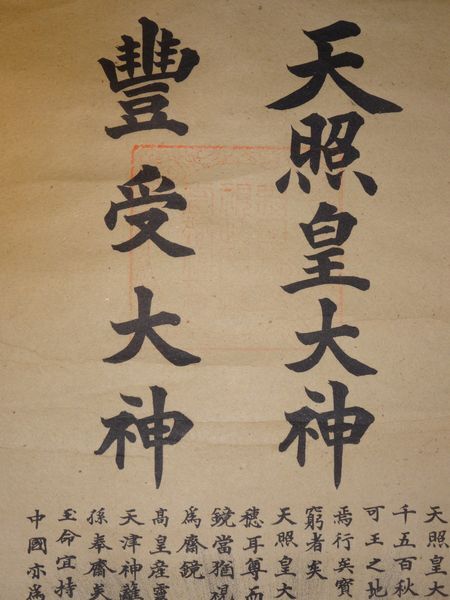 天照皇大神
豐受大神
天照皇大
千五百秋
可王之地
焉行矣寳
窮者矣
天照皇大
穗耳尊而
鏡當猶視
爲齋鏡
高皇産靈
天津神籬
孫奉齋矣
玉命宜持
中國亦爲